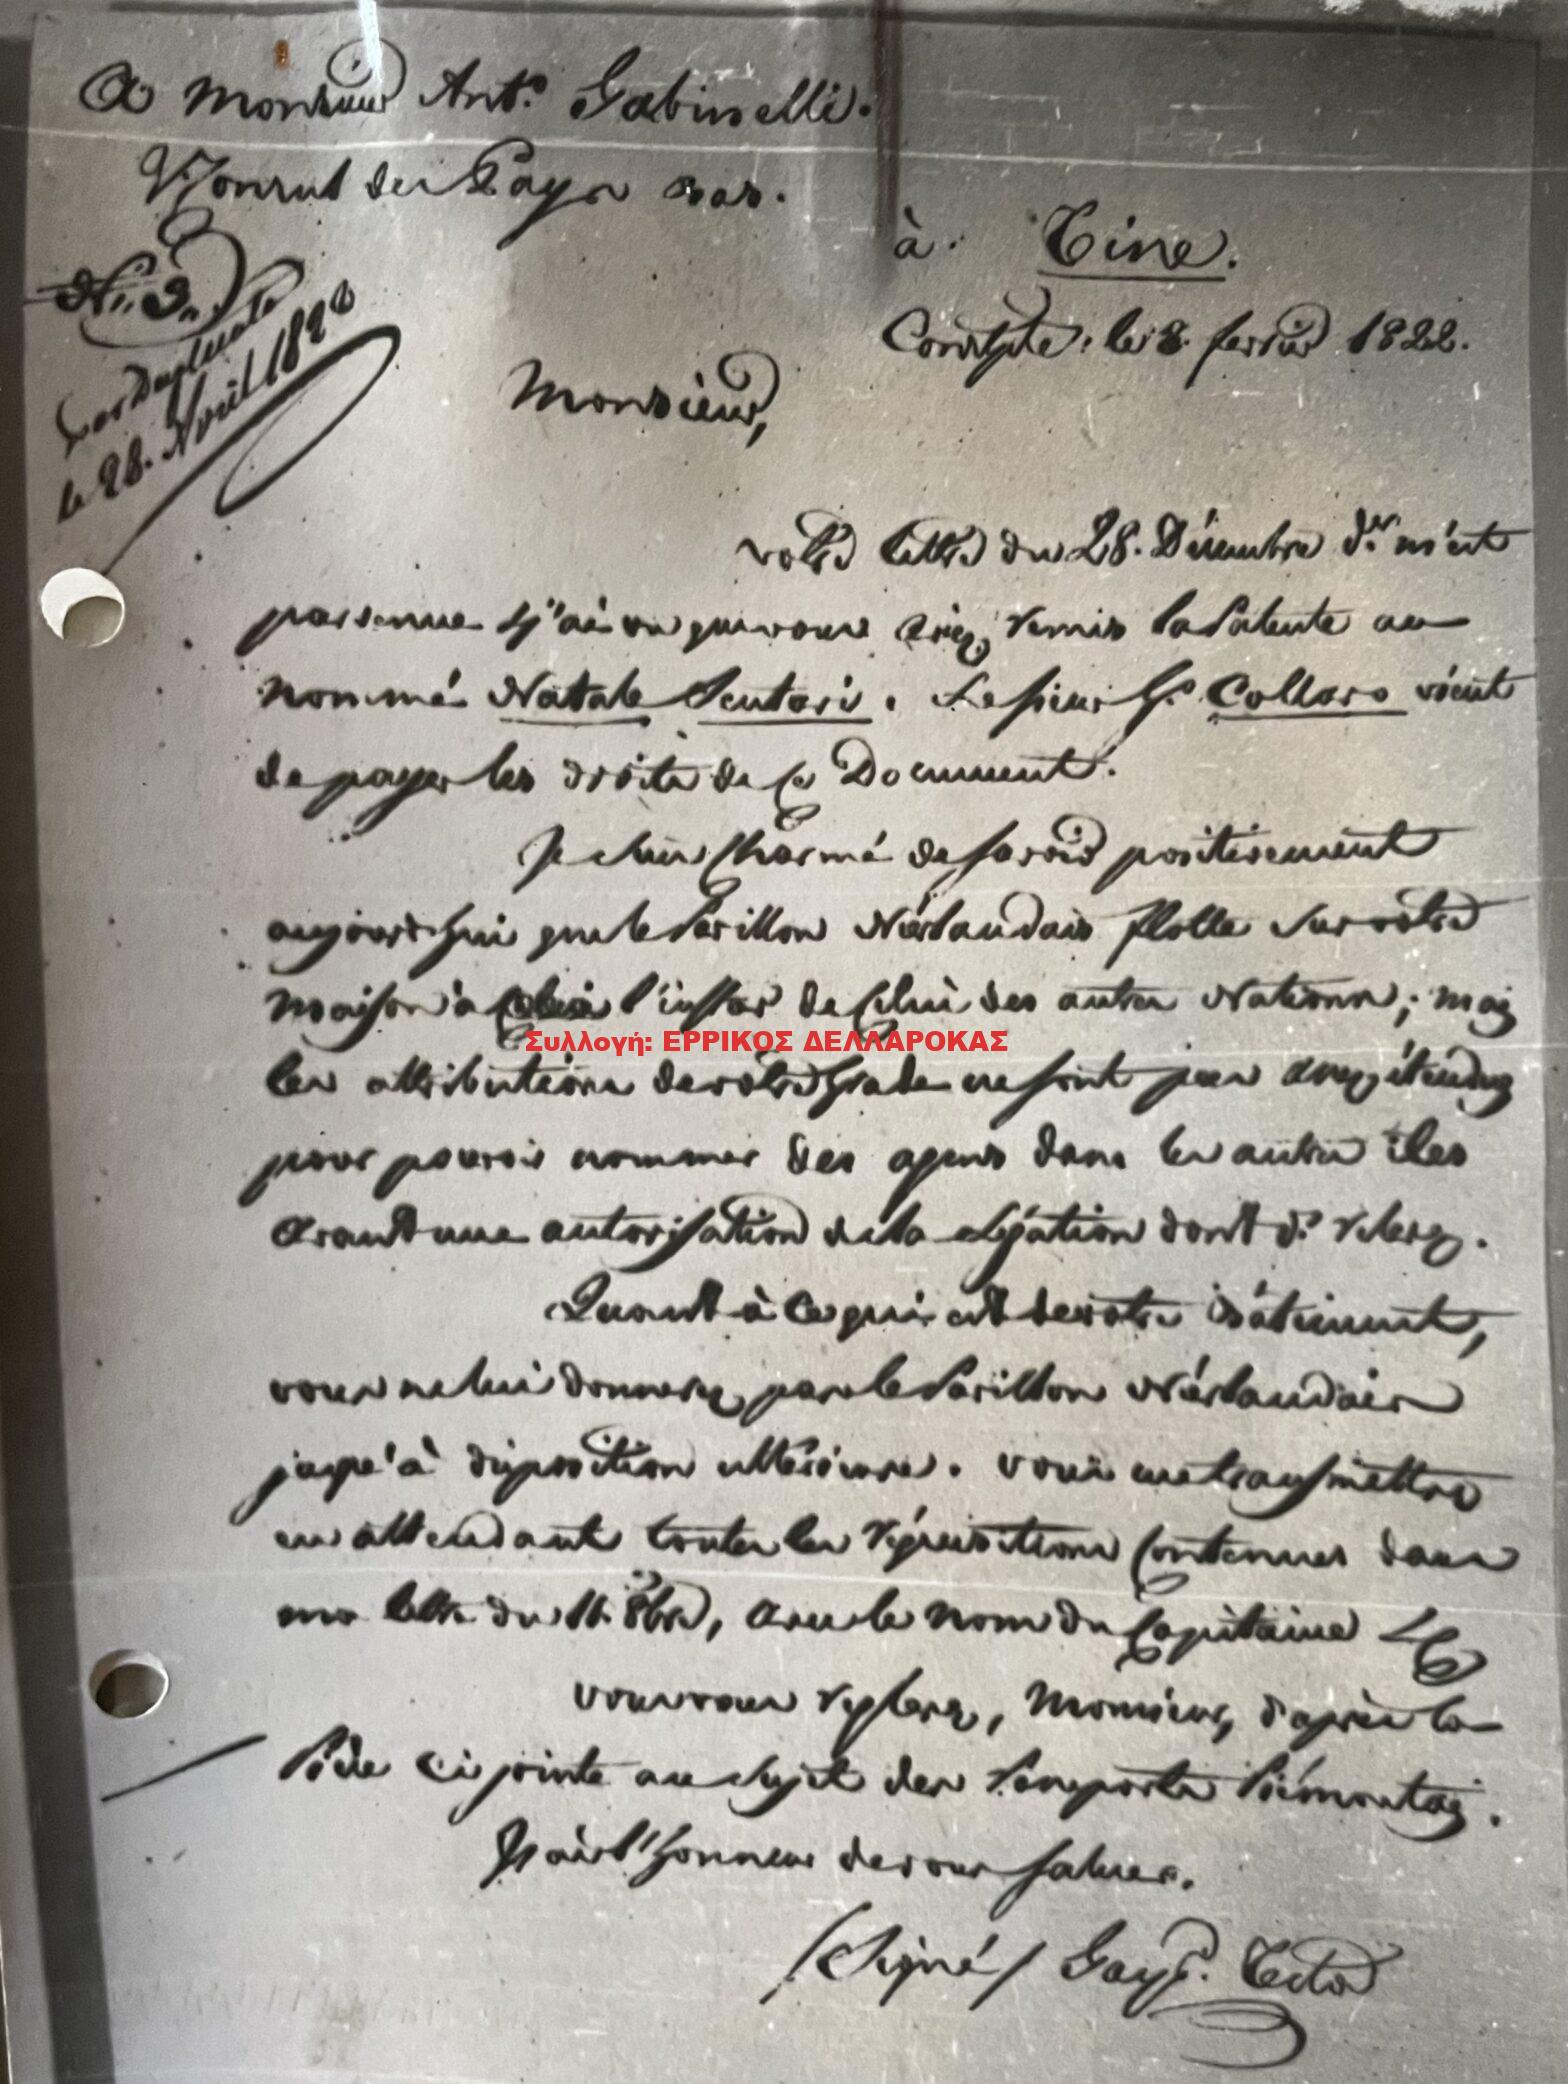 A Monsieur Ant.° Gabinelli.
Consul des Pays bas.
à Tine.
N.° 3.
par Duplicata
le 28. Avril 1822
Constple. le 8. fevrier 1822.
Monsieur,
votre lettre du 28. Décembre d.er m'est
parvenue & j'ai vu que vous aviez remis la Patente au
nommé Natale Scutari. Le sieur G. Collaro vient
de payer les droits de ce Document.
Je suis charmé de savoir positivement
aujourd'hui que le Pavillon Néerlandais flotte sur votre
maison à l'instar de celui des autres Nations; mais
les attributions de votre grade ne sont pas assez étendues
pour pouvoir nommer des agens dans les autres îles
avant une autorisation de la Légation dont d.° relevez.
Quant à ce qui est de votre bâtiment,
vous ne lui donnerez pas le Pavillon Néerlandais
jusqu'à disposition ultérieure. vous me transmettrez
en attendant toutes les réquisitions contenues dans
ma lettre du 11. 8bre, avec le nom du Capitaine &c
vous vous réglerez, Monsieur, d'après la
Pièce ci jointe au sujet des Passeports Piémontais.
J'ai l'honneur de vous saluer.
(Signé) Gasp.d Testa
Συλλογή: ΕΡΡΙΚΟΣ ΔΕΛΛΑΡΟΚΑΣ